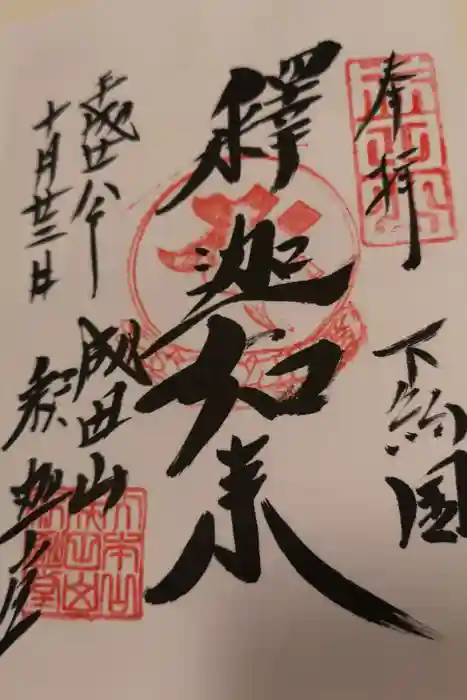 奉拝
下総国
釋迦如来
成田山
釈迦堂
平成廿八年
十月廿三日